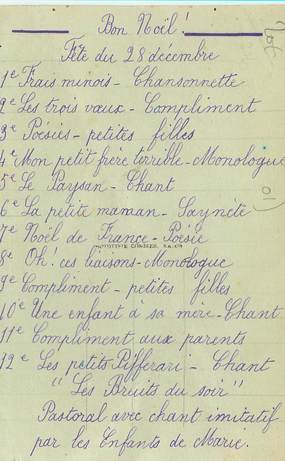 Bon Noël !
Fête du 28 décembre
1e Frais minois - Chansonnette
2e Les trois vœux - Compliment
3e Poésies - petites filles
4e Mon petit frère terrible - Monologue
5e Le Paysan - Chant
6e La petite maman - Saynète
7e Noël de France - Poésie
8e Oh! ces liaisons - Monologue
9e Compliment - petites filles
10e Une enfant à sa mère - Chant
11e Compliment aux parents
12e Les petits Pifferari - Chant
"Les Bruits du soir"
Pastoral avec chant imitatif
par les Enfants de Marie.